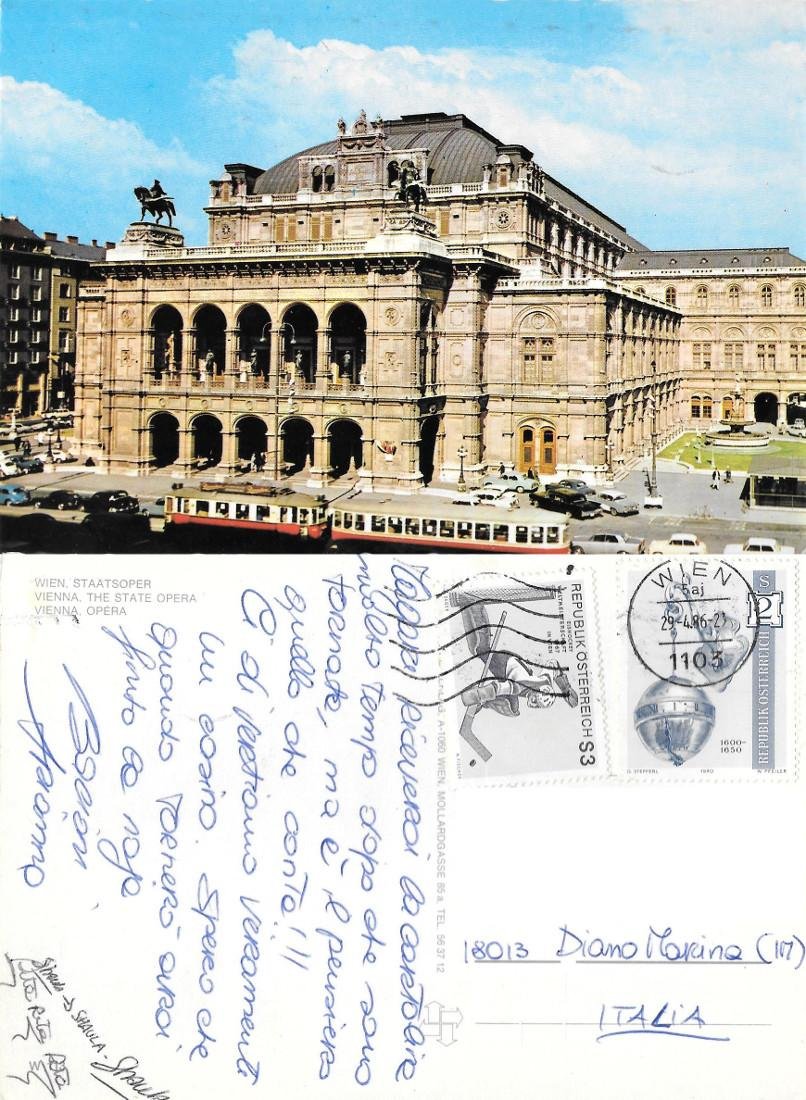 WIEN, STAATSOPER
VIENNA. THE STATE OPERA
VIENNA. OPÉRA
riceverai la cartolina
molto tempo dopo che sono
tornata, ma è il pensiero
quello che conta!!!
Ci di vertiamo veramente
un casino. Spero che
quando tornerò avrai
finito la naja
Bacioni
A-1060 WIEN, MOLLARDGASSE 85 a, TEL. 56 37 12
REPUBLIK ÖSTERREICH S3
EISHOCKEY
WELTMEISTERSCHAFT
1967
IN WIEN
WIEN
29.-4.86-21
1103
S 2
1600-
1650
REPUBLIK ÖSTERREICH
1970
W. PFEILER
18013 Diano Marina (IM)
ITALIA
Shaula → SHAULA - Shaula